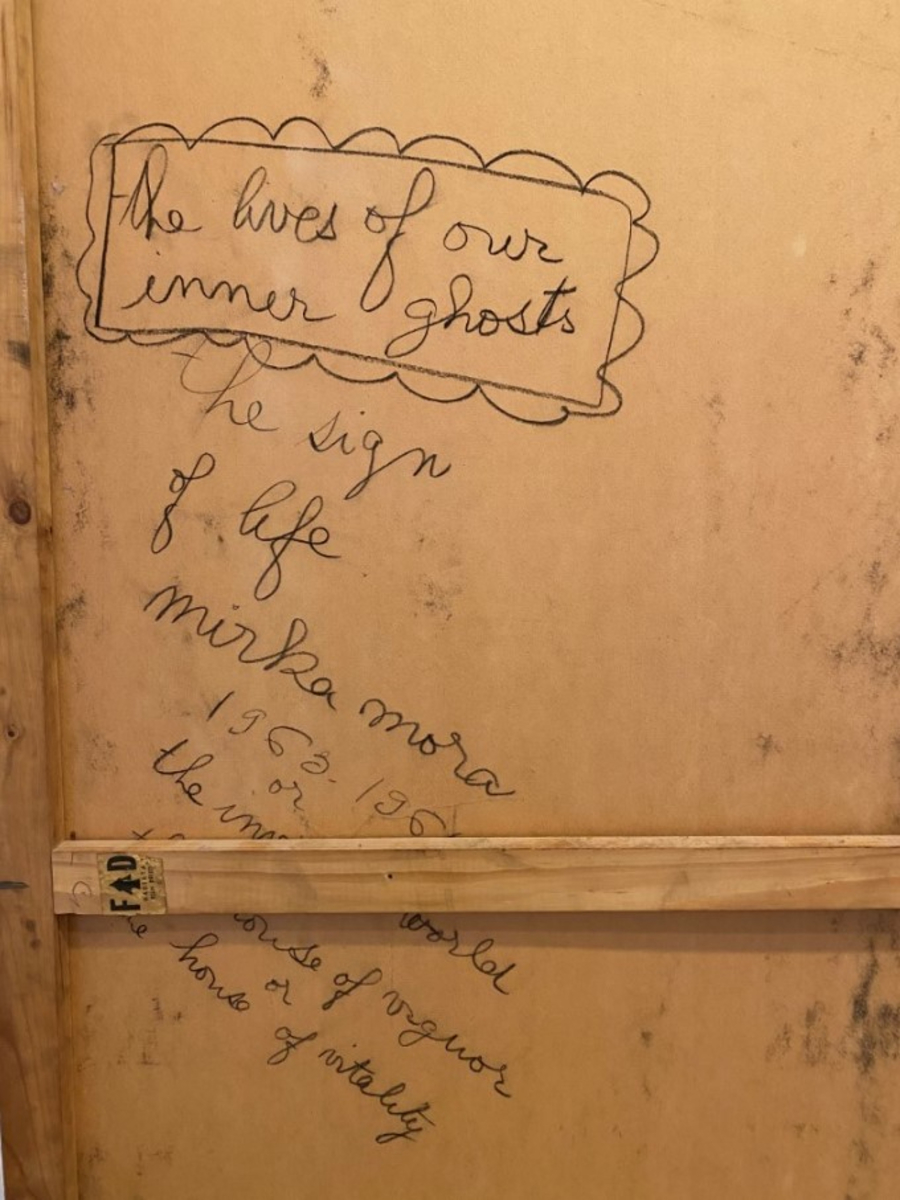 the lives of our
inner ghosts
the sign
of life
mirka mora
1963. 196
or
the inn
world
ouse of viguor
or
he house of vitality
F D